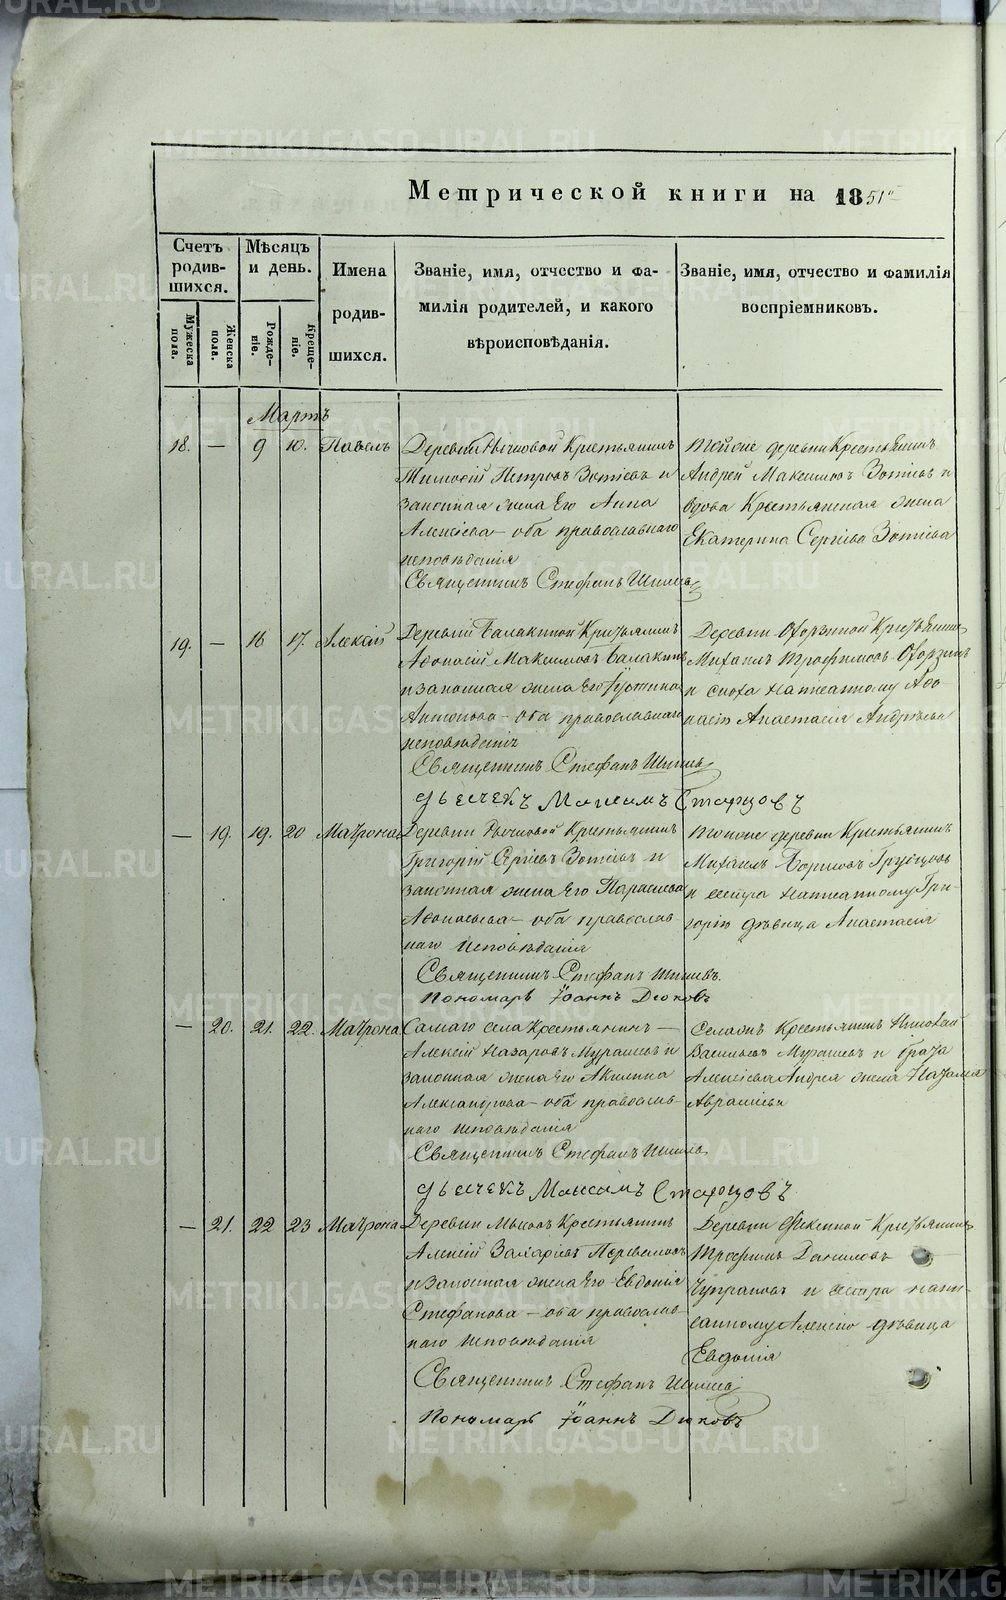 Метрической книги на 1851й
Счетъ родив-шихся.
Мужеска пола.
Женска пола.
Мѣсяцъ и день.
Рожде-ніе.
Креще-ніе.
Имена родив-шихся.
Званіе, имя, отчество и фа-
милія родителей, и какого
вѣроисповѣданія.
Званіе, имя, отчество и фамилія
воспріемниковъ.
Мартъ
18. — 9 10. Павелъ
Деревни Крестьянинъ
Тимофей Петровъ Зотіевъ и
законная жена Его Анна
Алексіева — оба православнаго
исповѣданія
Священникъ Стефанъ
Тойже деревни Крестьянинъ
Андрей Максимовъ Зотіевъ и
вдова Крестьянская жена
Екатерина Сергіева Зотіева
19. — 16 17. Алексій
Деревни Балакиной Крестьянинъ
Афонасій Максимовъ Балакинъ
и законная жена Его Іустина
Антонова — оба православнаго
исповѣданія
Священникъ Стефанъ
Дьячекъ Максимъ Старцовъ
Деревни Крестьянинъ
Михаилъ Трофимовъ
и сноха написанному Афо
насію Анастасія Андреева
— 19. 19. 20 Матрона
Деревни Крестьянинъ
Григорій Сергіевъ Зотіевъ и
законная жена Его Параскева
Афонасьева — оба православ-
наго исповѣданія
Священникъ Стефанъ
Пономарь Іоаннъ Дюковъ
Тойже деревни Крестьянинъ
Михаилъ Борисовъ
и сестра написанному Гри-
горію дѣвица Анастасія
— 20. 21. 22. Матрона
Самаго села Крестьянинъ —
Алексій Назаровъ Мурашевъ и
законная жена Его Акилина
Александрова — оба православ-
наго исповѣданія
Священникъ Стефанъ
Дьячекъ Максимъ Старцовъ
Селаонъ Крестьянинъ Николай
Васильевъ Мурашевъ и брата
Алексіева Андрея жена Наталія
Авраміева
— 21. 22 23 Матрона
Деревни Крестьянинъ
Алексій Захаріевъ
и законная жена Его Евдокія
Стефанова — оба православ-
наго исповѣданія
Священникъ Стефанъ
Пономарь Іоаннъ Дюковъ
Деревни Крестьянинъ
Трофимъ Даниловъ
и сестра напи-
санному Алексію дѣвица
Евдокія
METRIKI.GASO-URAL.RU